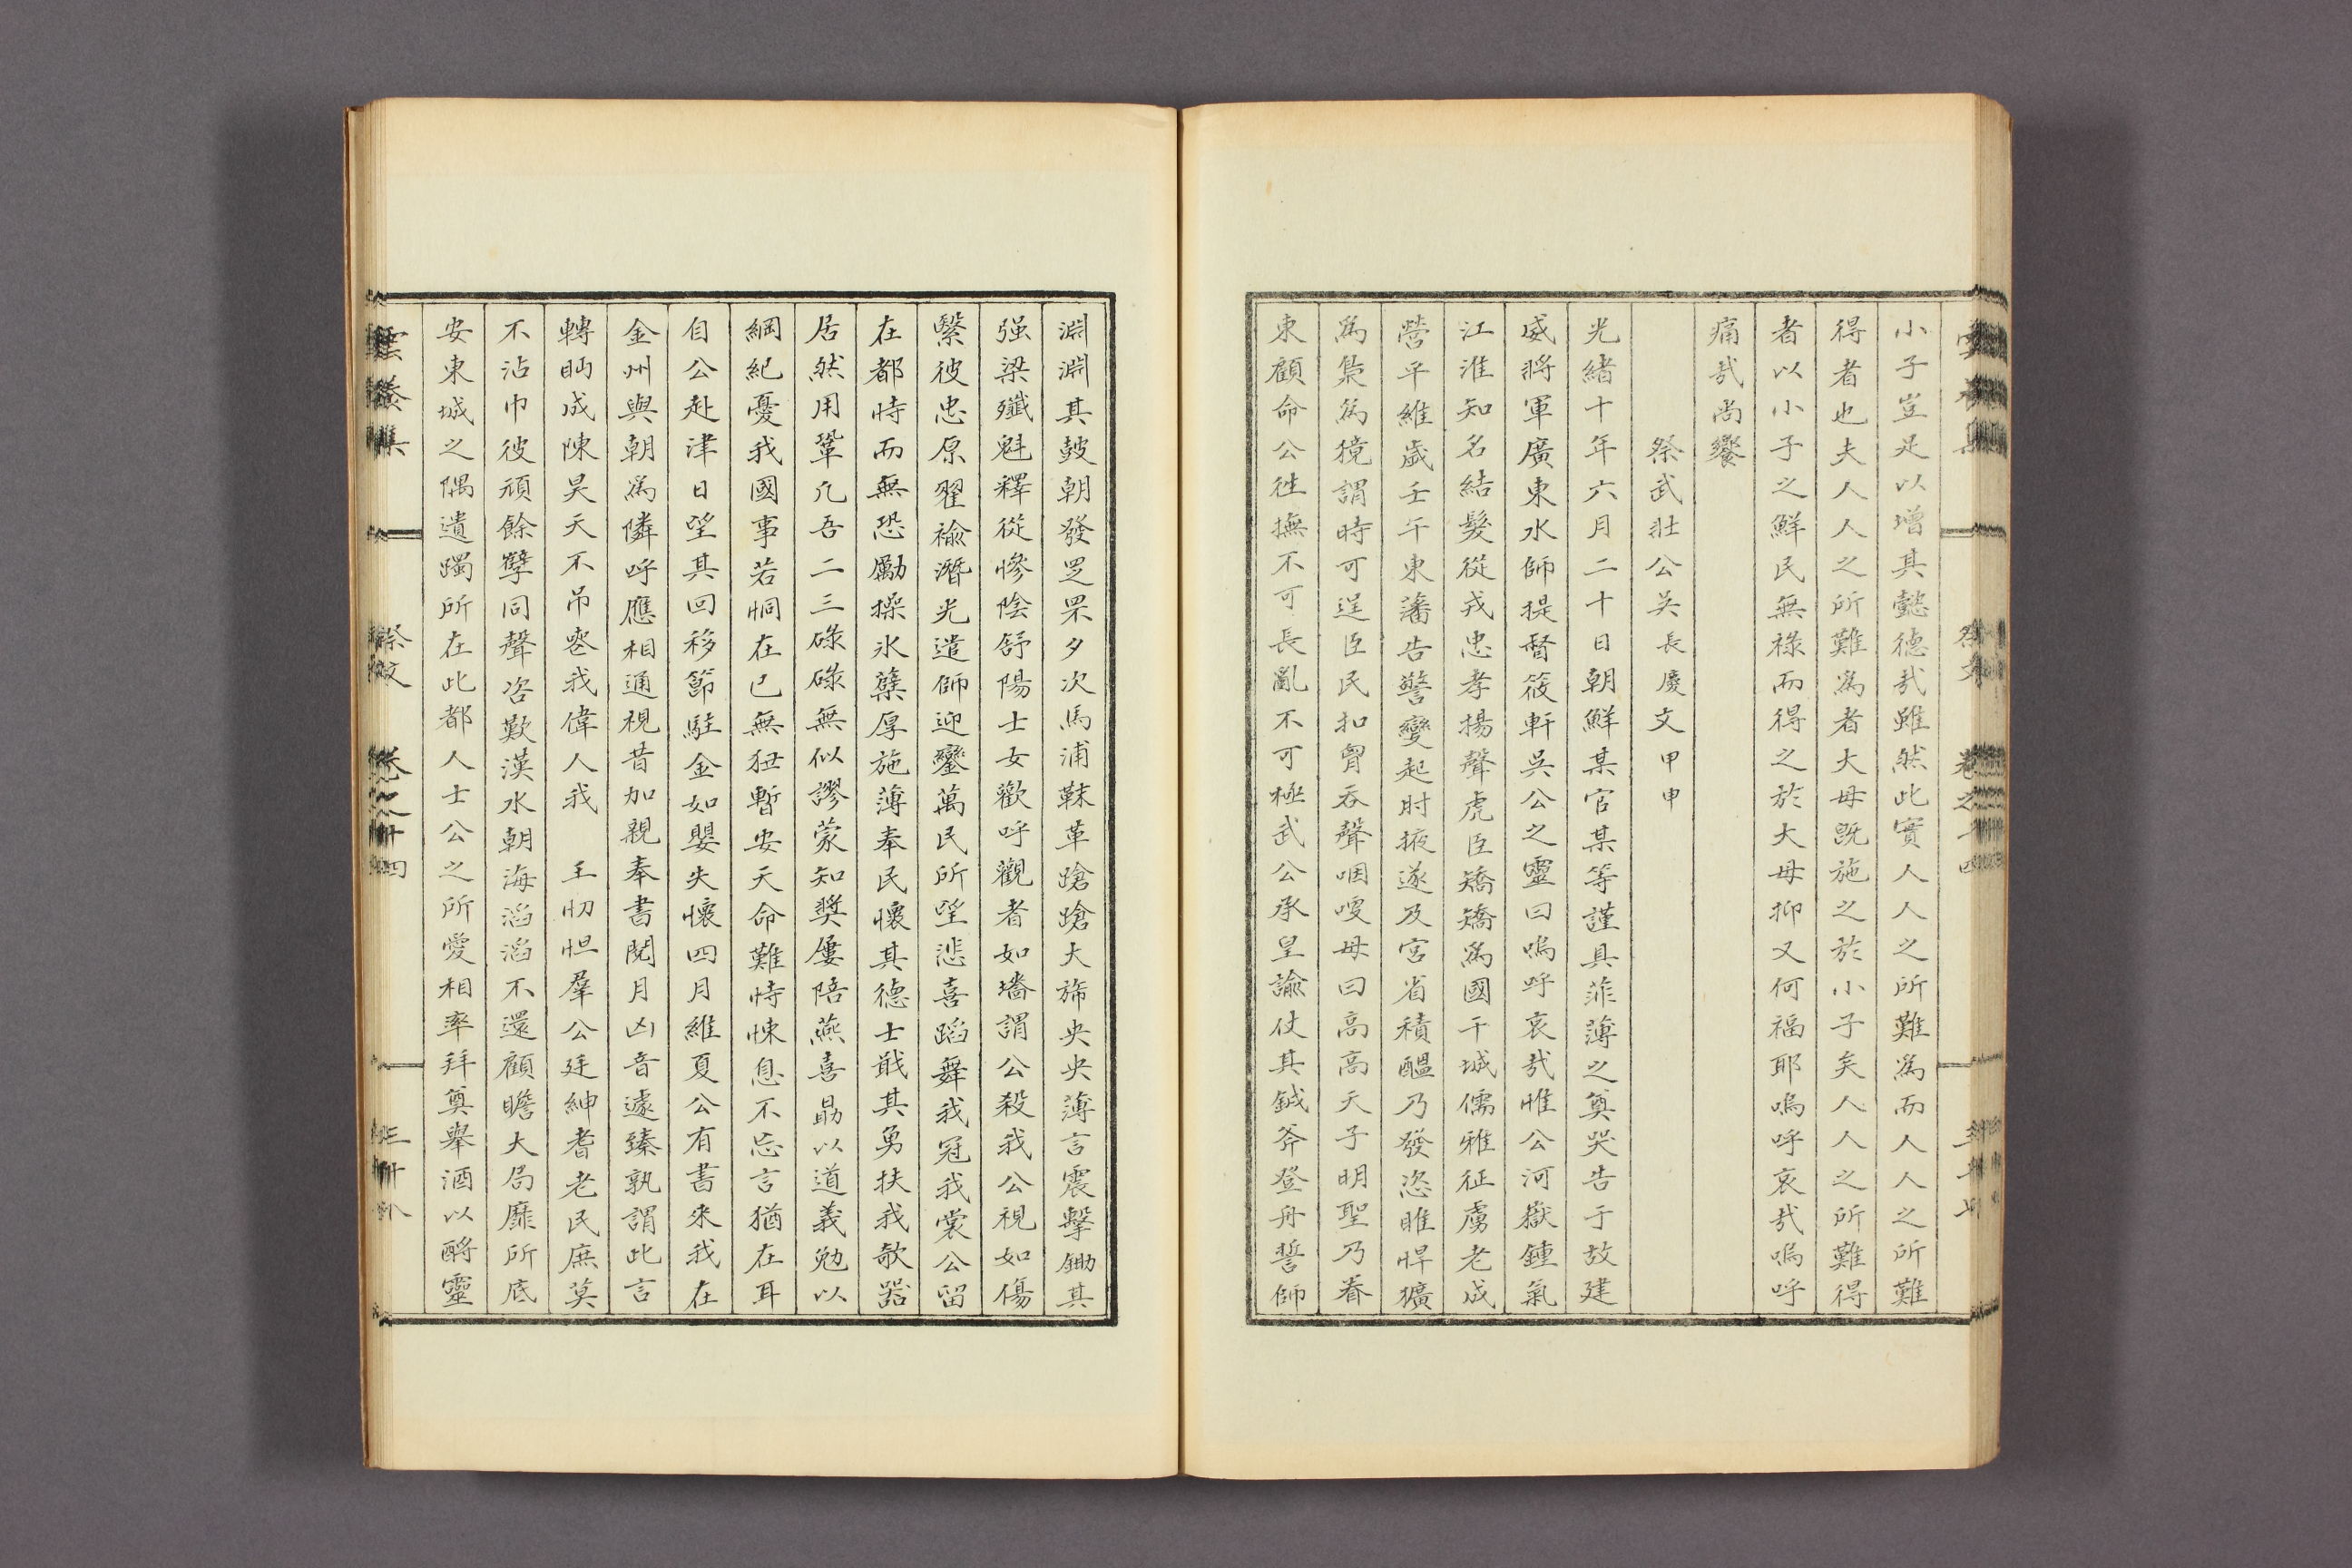 小子豈足以增其懿德哉雖然此實人人之所難爲而人人之所難
得者也夫人人之所難爲者大母旣施之於小子矣人人之所難得
者以小子之鮮民無祿而得之於大母抑又何福耶嗚呼哀哉嗚呼
痛哉尚饗
祭武壯公吳長慶文甲申
光緖十年六月二十日朝鮮某官某等謹具菲薄之奠哭告于故建
威將軍廣東水師提督筱軒吳公之靈曰嗚呼哀哉惟公河嶽鍾氣
江淮知名結髮從戎忠孝揚聲虎臣矯矯爲國干城儒雅征虜老成
營平維歲壬午東藩告警變起肘掖遂及宮省積醞乃發恣睢悍獷
爲梟爲獍謂時可逞臣民扣胷吞聲咽嗄母曰高高天子明聖乃眷
東顧命公往撫不可長亂不可極武公承皇諭仗其鉞斧登舟誓師
淵淵其鼓朝發罡罘夕次馬浦靺革蹌蹌大旆央央薄言震擊鋤其
强梁殲魁釋從慘陰舒陽士女歡呼觀者如墻謂公殺我公視如傷
繄彼忠原翟褕潛光遣師迎鑾萬民所望悲喜蹈舞我冠我裳公留
在都恃而無恐勵操氷蘖厚施薄奉民懷其德士戢其勇扶我欹器
居然用鞏凡吾二三碌碌無似謬蒙知奬屢陪燕喜勗以道義勉以
綱紀憂我國事若恫在已無狃暫安天命難恃悚息不忘言猶在耳
自公赴津日望其回移節駐金如嬰失懷四月維夏公有書來我在
金州與朝爲隣呼應相通視昔加親奉書閱月凶音遽臻孰謂此言
轉眄成陳昊天不吊喪我偉人我 王忉怛羣公廷紳耆老民庶莫
不沾巾彼頑餘孽同聲咨歎漢水朝海滔滔不還顧瞻大局靡所底
安東城之隅遺躅所在此都人士公之所愛相率拜奠舉酒以酹靈
雲養集 祭文 卷之十四 三十八